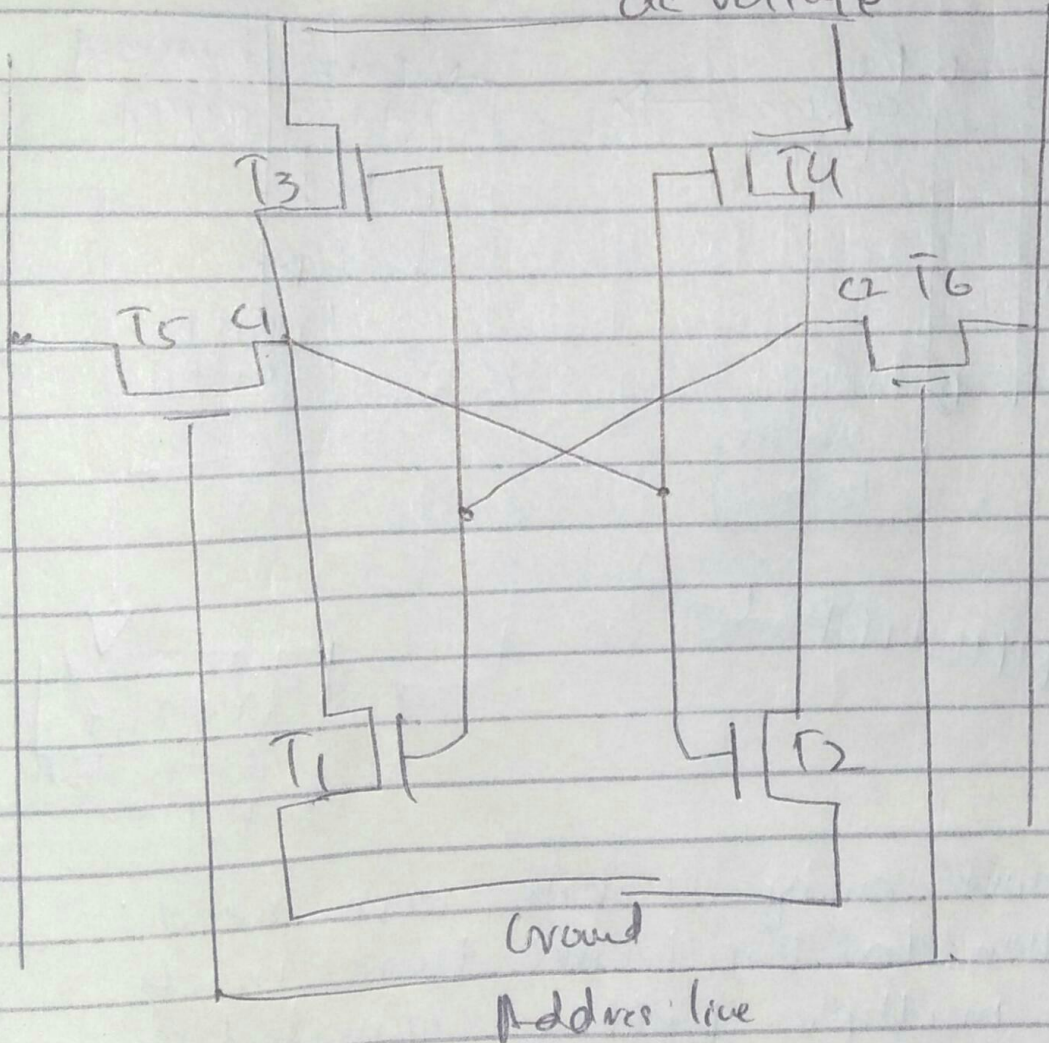 dc voltage
T3
T4
T5 C1
C2 T6
T1
T2
Ground
Address line